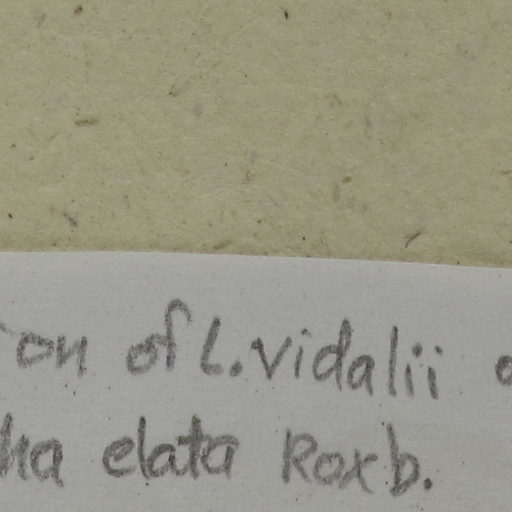 on of L. vidalii
elata Roxb.